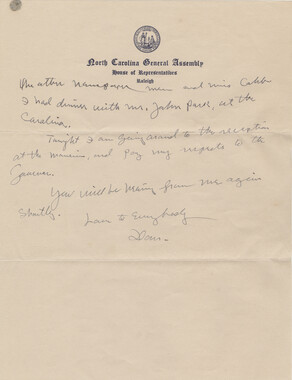 North Carolina General Assembly
House of Representatives
Raleigh
and
I had dinner with Mr. John Park, at the
Carolina.
Tonight I am going around to the reception
at the mansion, and pay my respects to the
Governor.
You will be hearing from me again
Shortly.
Love to Everybody